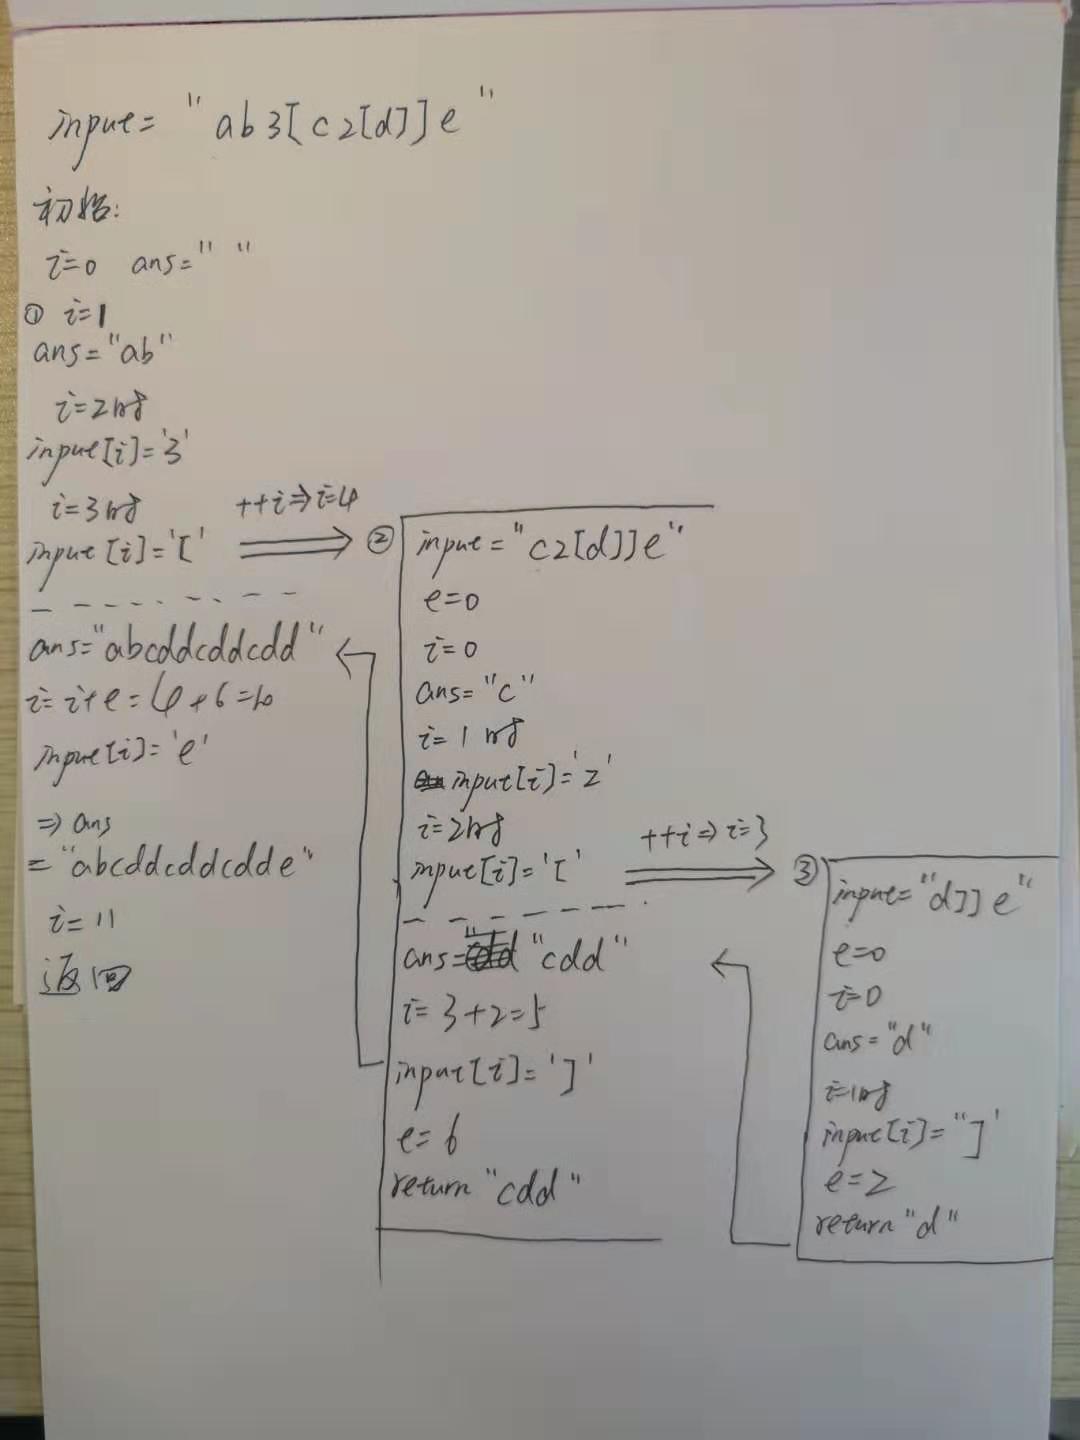 input= "ab3[c2[d]]e"
初始:
i=0 ans=" "
① i=1
ans="ab"
i=2时
input[i]='3'
i=3时
input[i]='['
++i⇒i=4
ans="abcddcddcdd"
i=i+e=4+6=10
input[i]='e'
⇒ans
="abcddcddcdde"
i=11
返回
② input="c2[d]]e"
e=0
i=0
ans="c"
i=1时
input[i]='2'
i=2时
input[i]='['
++i⇒i=3
ans="cdd"
i=3+2=5
input[i]=']'
e=6
return "cdd"
③ input="d]]e"
e=0
i=0
ans="d"
i=1时
input[i]="]'
e=2
return "d"